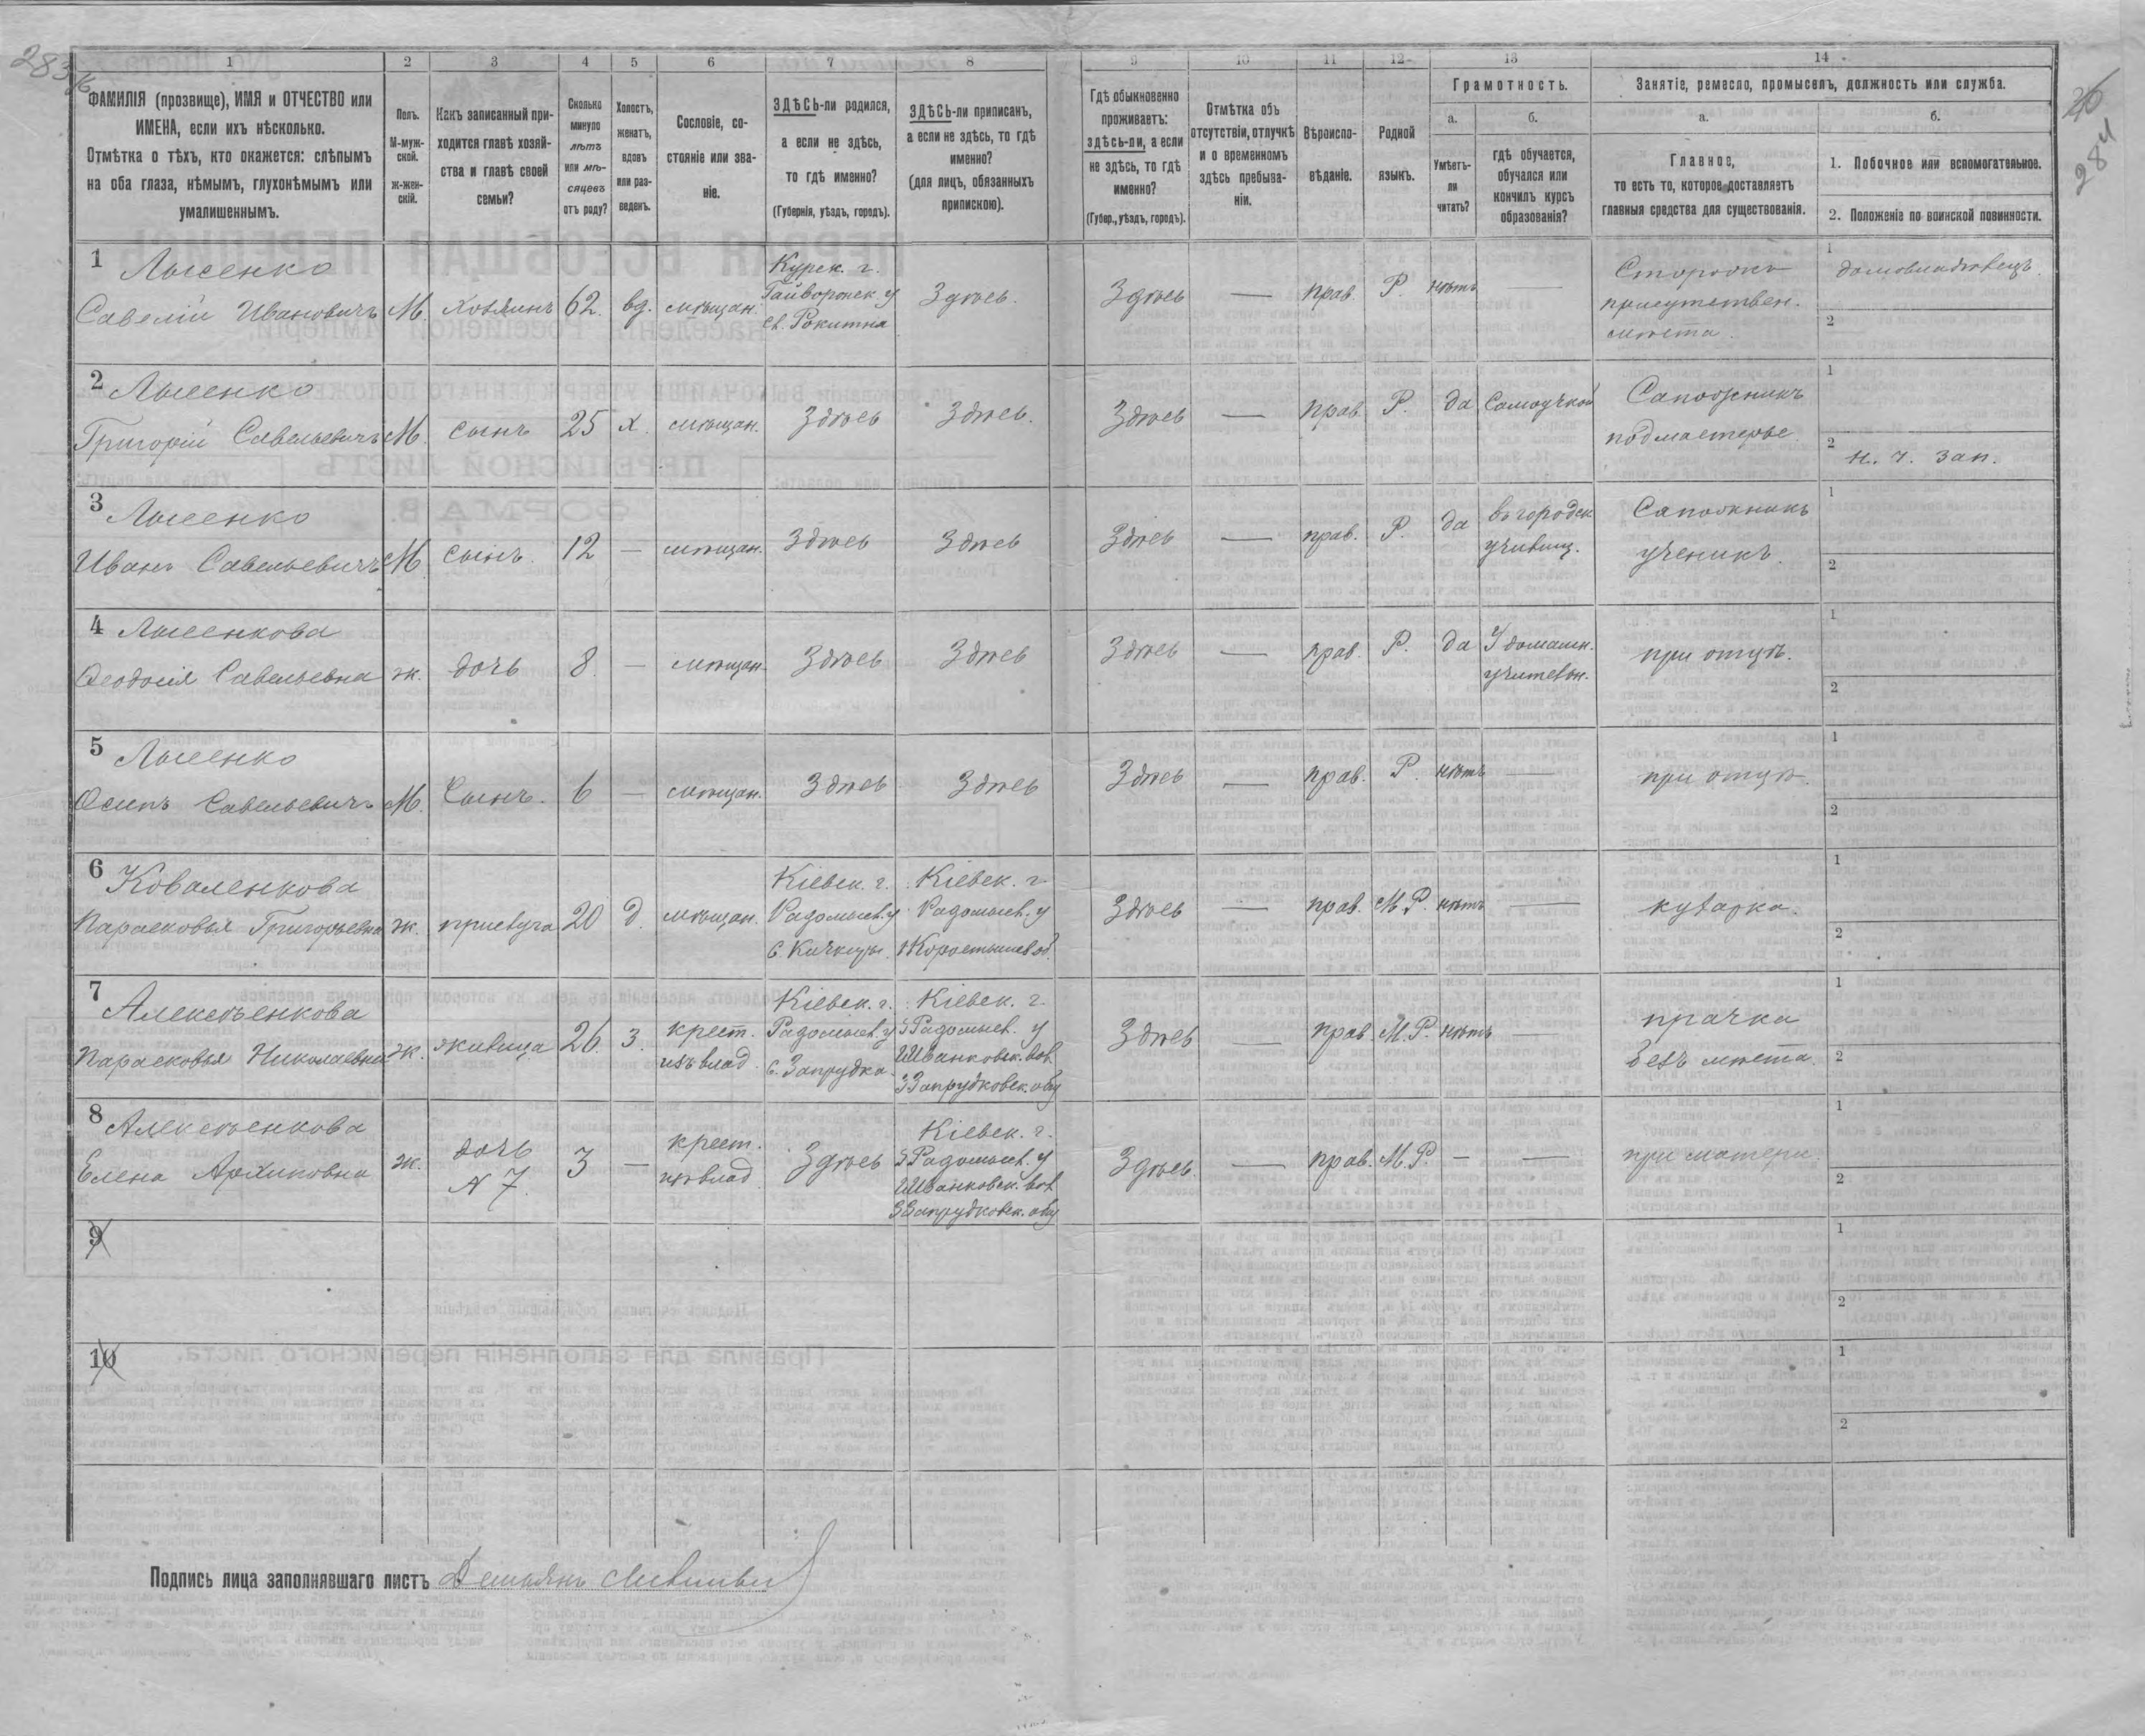 283
26
284
1 2 3 4 5 6 7 8 9 10 11 12 13 14
ФАМИЛІЯ (прозвище), ИМЯ и ОТЧЕСТВО или
ИМЕНА, если ихъ нѣсколько.
Отмѣтка о тѣхъ, кто окажется: слѣпымъ
на оба глаза, нѣмымъ, глухонѣмымъ или
умалишеннымъ.
Полъ.
М-муж-
ской.
ж-жен-
скій.
Какъ записанный при-
ходится главѣ хозяй-
ства и главѣ своей
семьи?
Сколько
минуло
лѣтъ
или мѣ-
сяцевъ
отъ роду?
Холостъ,
женатъ,
вдовъ
или раз-
веденъ.
Сословіе, со-
стояніе или зва-
ніе.
ЗДѢСЬ-ли родился,
а если не здѣсь,
то гдѣ именно?
(Губернія, уѣздъ, городъ).
ЗДѢСЬ-ли приписанъ,
а если не здѣсь, то гдѣ
именно?
(для лицъ, обязанныхъ
припискою).
Гдѣ обыкновенно
проживаетъ:
здѣсь-ли, а если
не здѣсь, то гдѣ
именно?
(Губер., уѣздъ, городъ).
Отмѣтка объ
отсутствіи, отлучкѣ
и о временномъ
здѣсь пребыва-
ніи.
Вѣроиспо-
вѣданіе.
Родной
языкъ.
Грамотность.
а.
Умѣетъ-
ли
читать?
б.
гдѣ обучается,
обучался или
кончилъ курсъ
образованія?
Занятіе, ремесло, промыселъ, должность или служба.
а.
Главное,
то есть то, которое доставляетъ
главныя средства для существованія.
б.
1. Побочное или вспомогательное.
2. Положеніе по воинской повинности.
1 Лысенко
Савелій Ивановичъ М. хозяинъ 62. вд. мѣщан.
Курск. г.
Гайворонск. у
сл. Рокитна
Здѣсь. Здѣсь — прав. Р. нѣтъ —
Сторожъ
присутствен.
мѣста.
1 домовладѣлецъ.
2
2 Лысенко
Григорій Савельевичъ М. сынъ 25 х. мѣщан. Здѣсь Здѣсь. Здѣсь — прав. Р. да Самоучкой
Сапожникъ
подмастерье
1
2 н. ч. зап.
3 Лысенко
Иванъ Савельевичъ М. сынъ. 12 — мѣщан. Здѣсь Здѣсь Здѣсь — прав. Р. да
въ городск
училищ.
Сапожникъ
ученикъ.
1
2
4 Лысенкова
Ѳеодосія Савельевна ж. дочь 8. — мѣщан. Здѣсь Здѣсь Здѣсь — прав. Р. да
У домашн.
учительн.
при отцѣ.
1
2
5 Лысенко
Осипъ Савельевичъ М. Сынъ. 6 — мѣщан. Здѣсь Здѣсь Здѣсь — прав. Р. нѣтъ —
при отцѣ.
1
2
6 Коваленкова
Парасковья Григорьевна ж. прислуга 20 д. мѣщан.
Кіевск. г.
Радомысл. у
с. Кичкиры.
Кіевск. г
Радомысл. у
Коростышев об.
Здѣсь — прав. М.Р. нѣтъ —
кухарка.
1
2
7 Алексѣенкова
Парасковья Николаевна ж. жилица 26. З.
крест.
изъ влад.
Кіевск. г.
Радомысл. у
с. Запрудка.
Кіевск. г.
Радомысл. у
Иванковск. вол.
Запрудковск. общ
Здѣсь — прав. М.Р. нѣтъ —
прачка
безъ мѣста.
1
2
8 Алексѣенкова
Елена Архиповна ж.
дочь
№ 7.
3 —
крест.
изъ влад.
Здѣсь
Кіевск. г.
Радомысл. у
Иванковск. вол.
Запрудковск. общ
Здѣсь. — прав. М.Р. — —
при матери.
1
2
9
1
2
10
1
2
Подпись лица заполнявшаго листъ Демьянъ